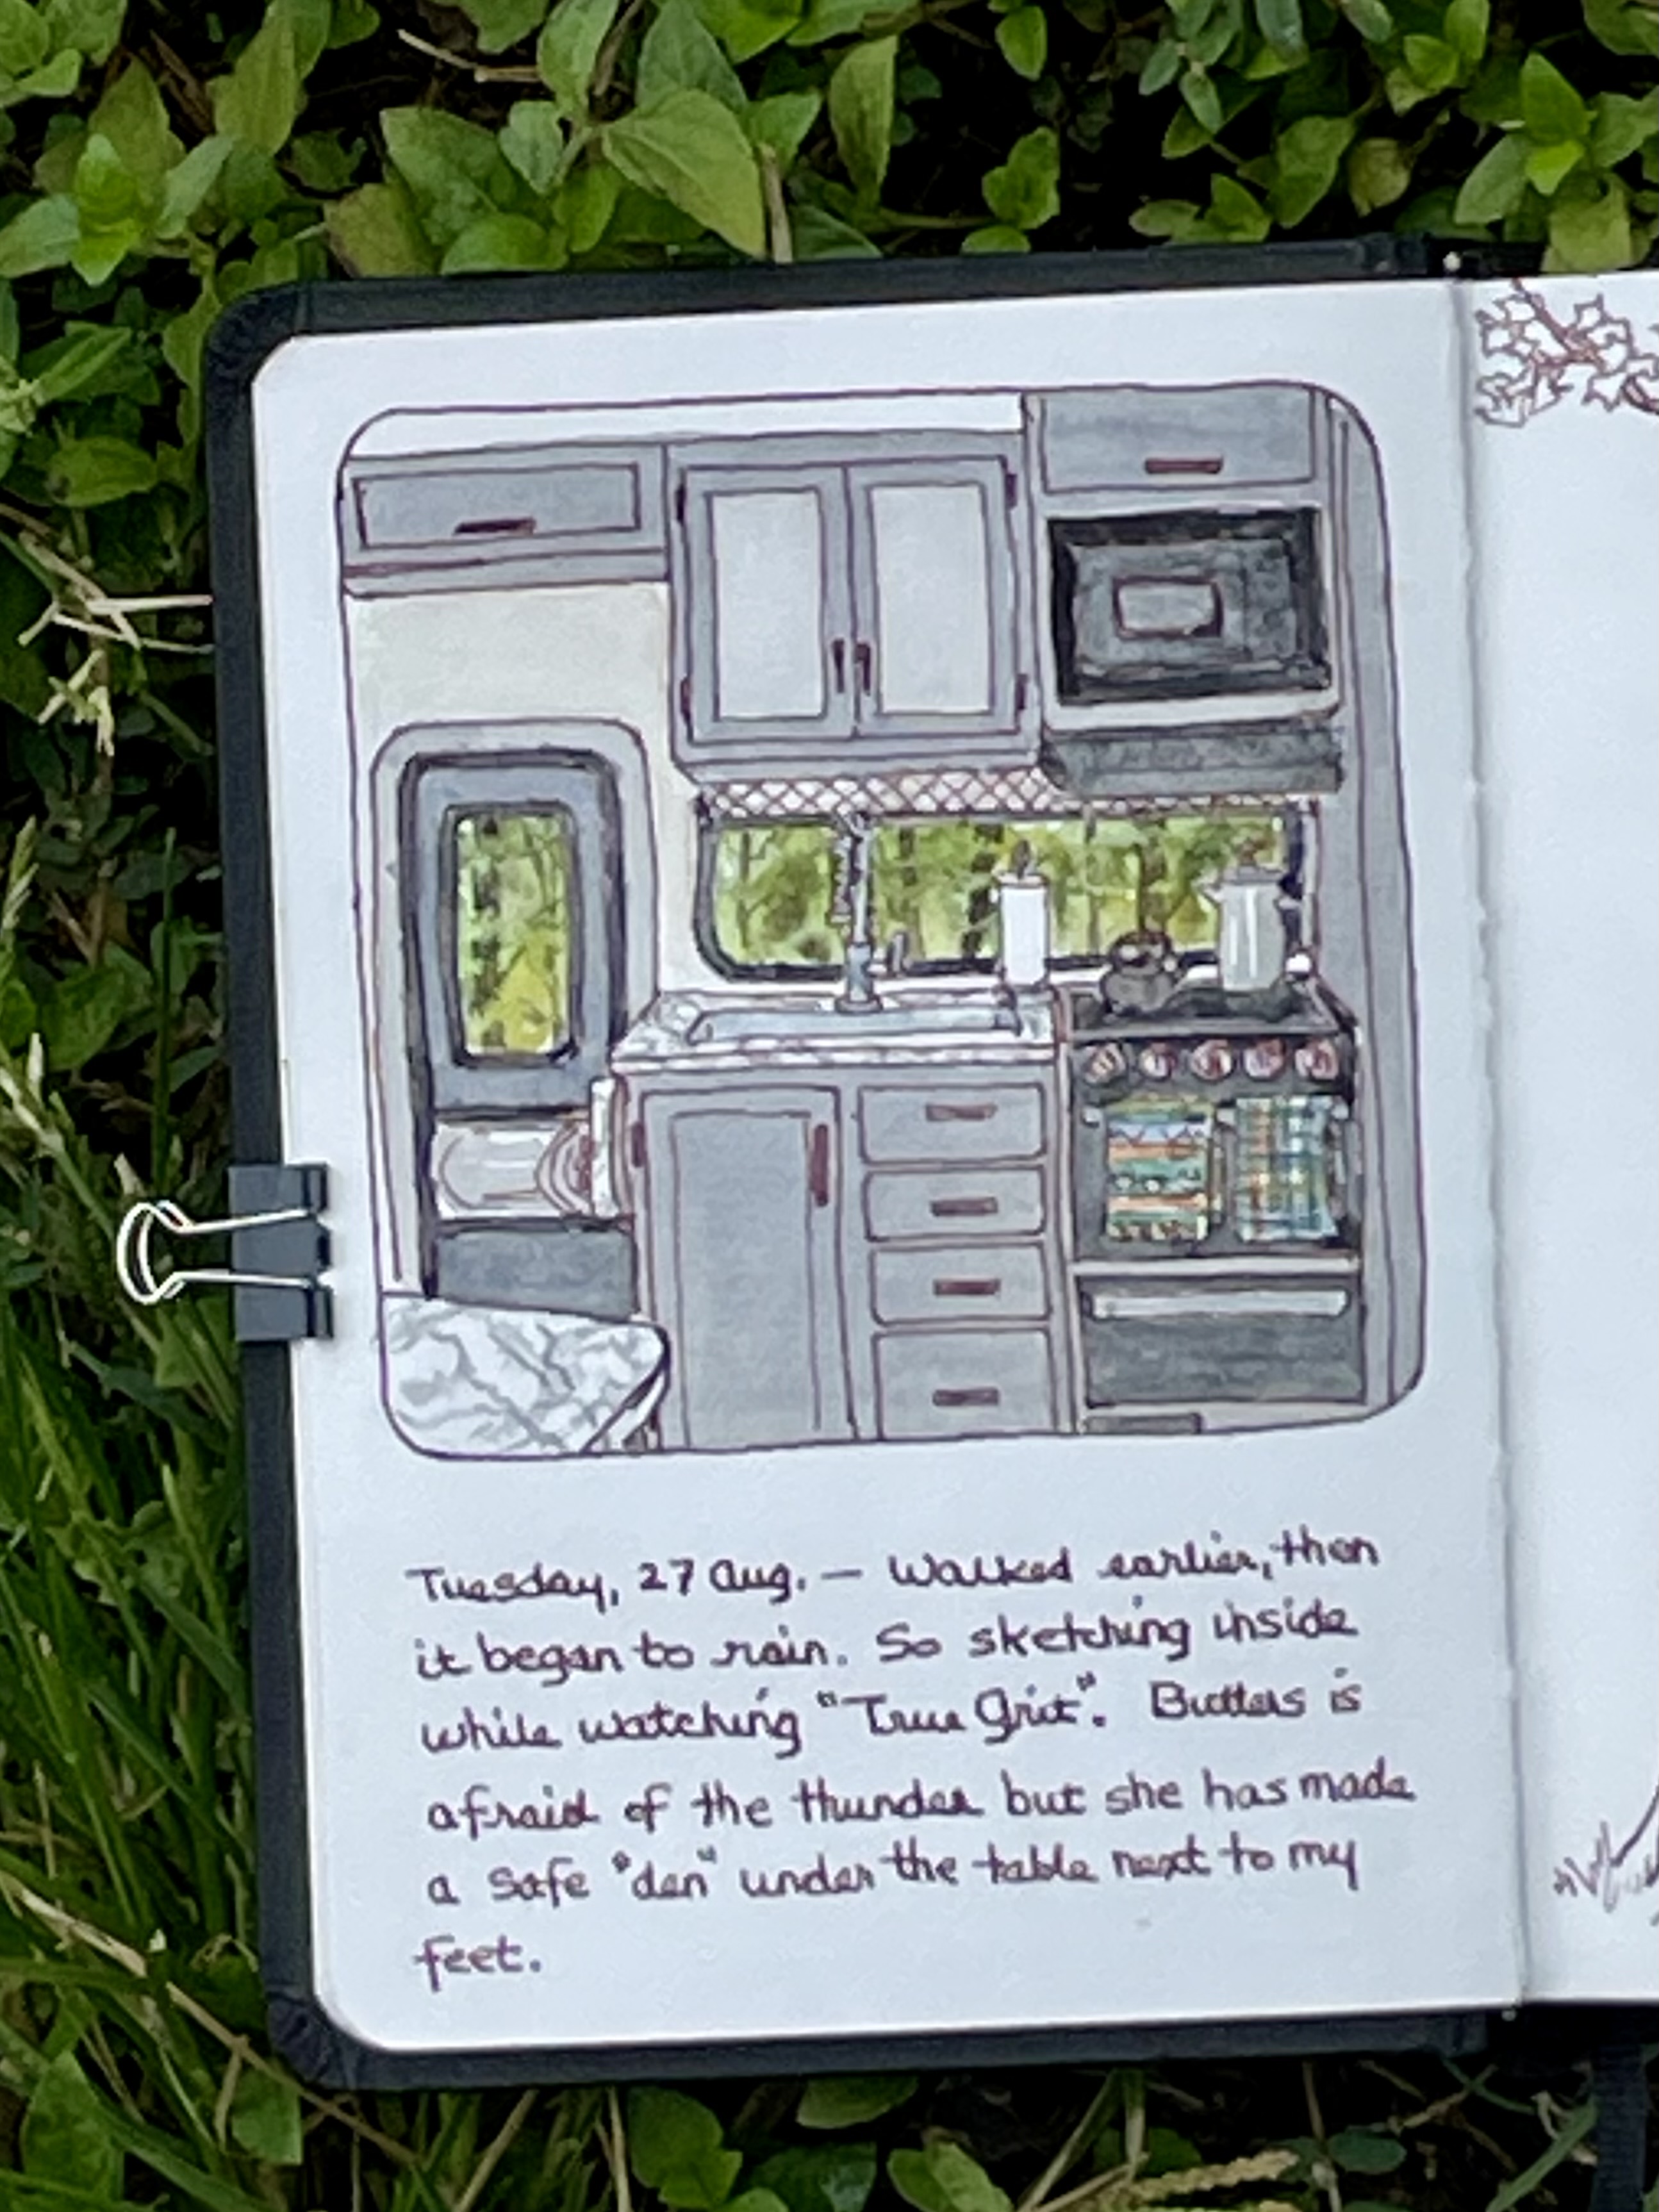 Tuesday, 27 Aug. — Walked earlier, then
it began to rain. So sketching inside
while watching "True Grit". Butters is
afraid of the thunder but she has made
a safe "den" under the table next to my
feet.